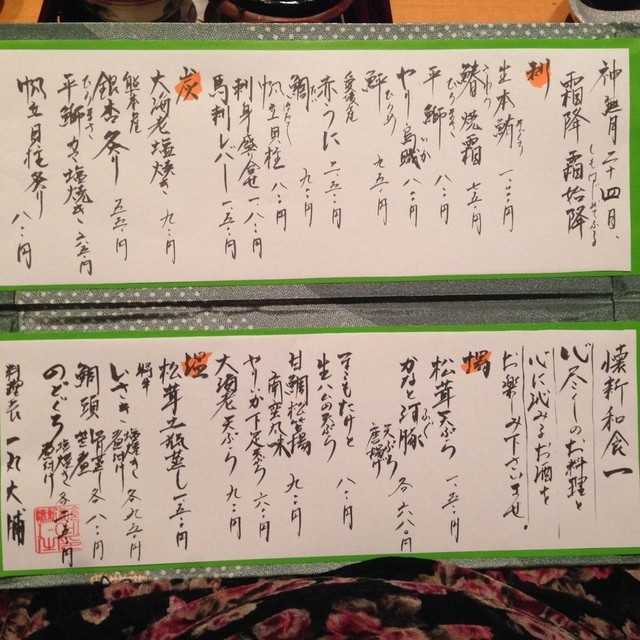 神無月二十四日、
霜降 霜始降
しもはじめてふる
刺
生本鮪 一、一〇〇円
鰆焼霜 七五〇円
平鰤 八〇〇円
やりいか
鮃 七五〇円
ひらめ
愛媛産
赤うに 二、二五〇円
鯛 九〇〇円
帆立貝柱 八〇〇円
刺身盛合せ 一、八〇〇円
馬刺レバー 一、五〇〇円
炭
大海老塩焼き 九〇〇円
熊本産
銀杏炙り 五五〇円
平鰤カマ塩焼き
帆立貝柱炙り 八〇〇円
懐新和食 一
心尽くしのお料理と
心に沁みるお酒を
お楽しみ下さいませ。
揚
松茸天ぷら 一、五〇〇円
かなと河豚
ふぐ
天ぷら
唐揚げ 各六八〇円
生ハムの天ぷら 八〇〇円
甘鯛松笠揚
南蛮風味 九〇〇円
やりいか下足天ぷら 六〇〇円
大海老天ぷら 九〇〇円
温
松茸土瓶蒸し 一、五〇〇円
いさき 塩焼き 煮付け 各九五〇円
鯛頭 各八〇〇円
のどぐろ 塩焼き 煮付け
料理長 一丸大輔